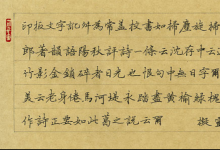 印板文字訛舛為常蓋校書如掃塵旋掃
郎著韻語陽秋評詩一條云沈存中云退
竹影金鎖碎者日光也恨句中無日字爾
美云老身倦馬河堤永踏盡黃榆綠槐
作詩正要如此葛之說云爾